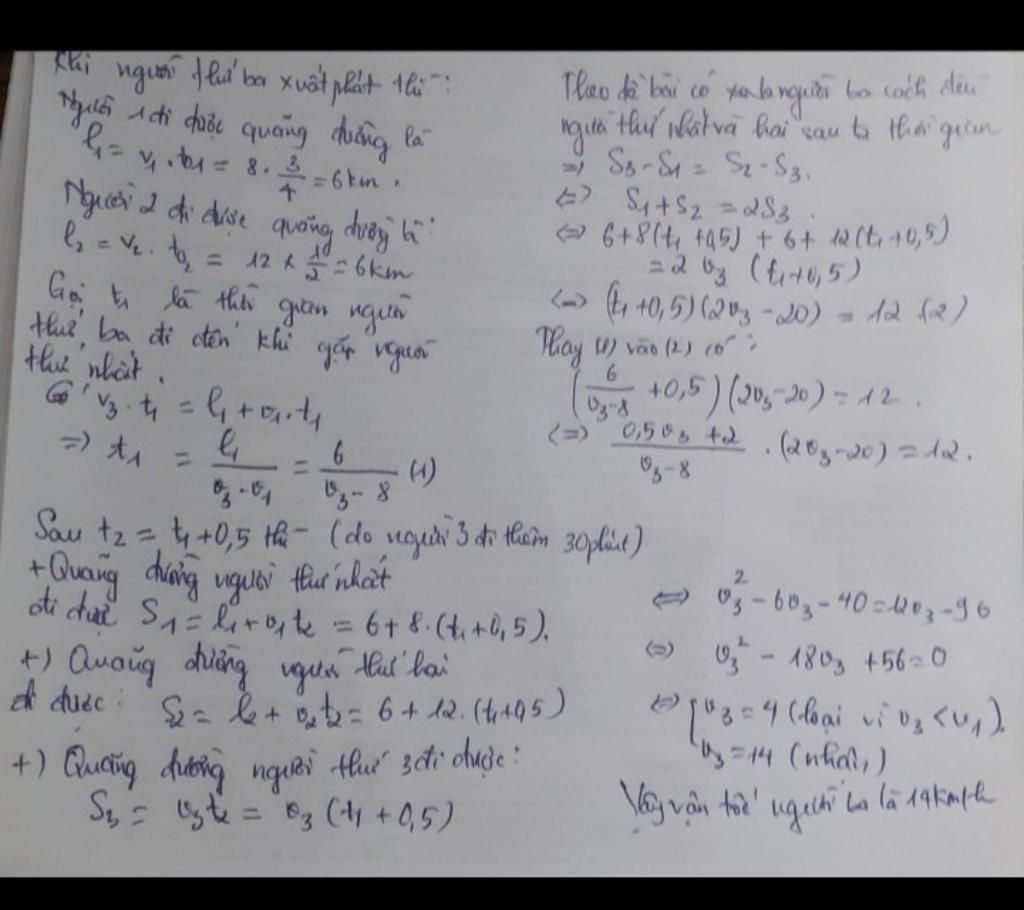 Khi người thứ ba xuất phát thì:
Người 1 đi được quãng đường là
l₁ = v₁ . t₀₁ = 8 . 3/4 = 6km .
Người 2 đi được quãng đường là:
l₂ = v₂ . t₀₂ = 12 × 1/2 = 6km
Gọi t₁ là thời gian người
thứ ba đi đến khi gặp người
thứ nhất .
Có v₃ . t₁ = l₁ + v₁ . t₁
=> t₁ = l₁/(v₃ - v₁) = 6/(v₃ - 8) (1)
Sau t₂ = t₁ + 0,5 thì (do người 3 đi thêm 30 phút)
+ Quãng đường người thứ nhất
đi được S₁ = l₁ + v₁t₂ = 6 + 8 . (t₁ + 0,5).
+) Quãng đường người thứ hai
đi được : S₂ = l₂ + v₂t₂ = 6 + 12 . (t₁ + 0,5)
+) Quãng đường người thứ 3 đi được :
S₃ = v₃t₂ = v₃ (t₁ + 0,5)
Theo đề bài có người ba cách đều
người thứ nhất và hai sau t₂ thời gian
=> S₃ - S₁ = S₂ - S₃.
<=> S₁ + S₂ = 2S₃ .
<=> 6 + 8(t₁ + 0,5) + 6 + 12(t₁ + 0,5)
= 2v₃ (t₁ + 0,5)
<=> (t₁ + 0,5)(2v₃ - 20) = 12 (2)
Thay (1) vào (2) có :
(6/(v₃ - 8) + 0,5)(2v₃ - 20) = 12 .
<=> (0,5v₃ + 2)/(v₃ - 8) . (2v₃ - 20) = 12.
<=> v₃² - 6v₃ - 40 = 12v₃ - 96
<=> v₃² - 18v₃ + 56 = 0
<=> [ v₃ = 4 (loại vì v₃ < v₁).
v₃ = 14 (nhận)
Vậy vận tốc người ba là 14km/h